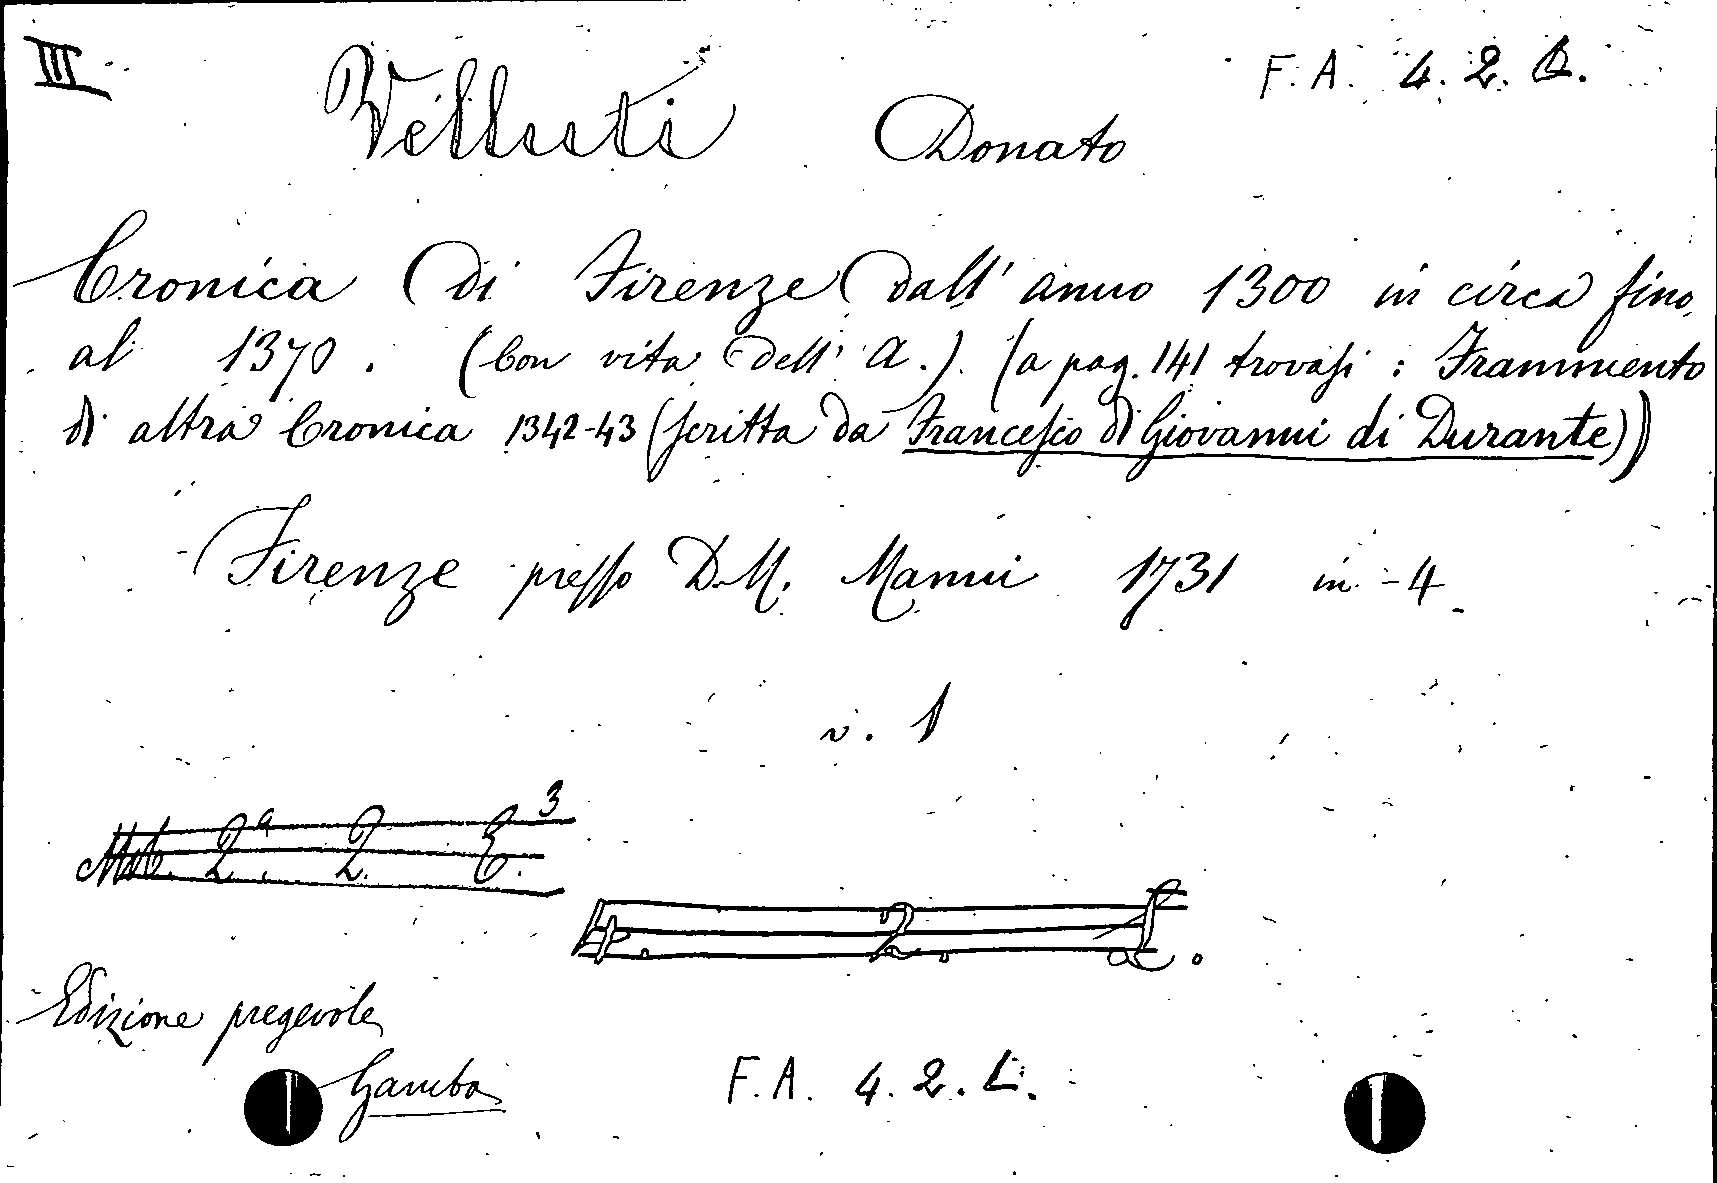 III
F. A. 4. 2. L.
Velluti Donato
Cronica di Firenze dall' anno 1300 in circa fino
al 1370. (Con vita dell' A.). (a pag. 141 trovasi : Frammento
di altra Cronica 1342-43 (scritta da Francesco di Giovanni di Durante))
Firenze presso D.M. Manni 1731 in-4
v. 1
2ª. 2. E.³
4. 2. L.
Edizione pregevole
Gamba
F. A. 4. 2. L.